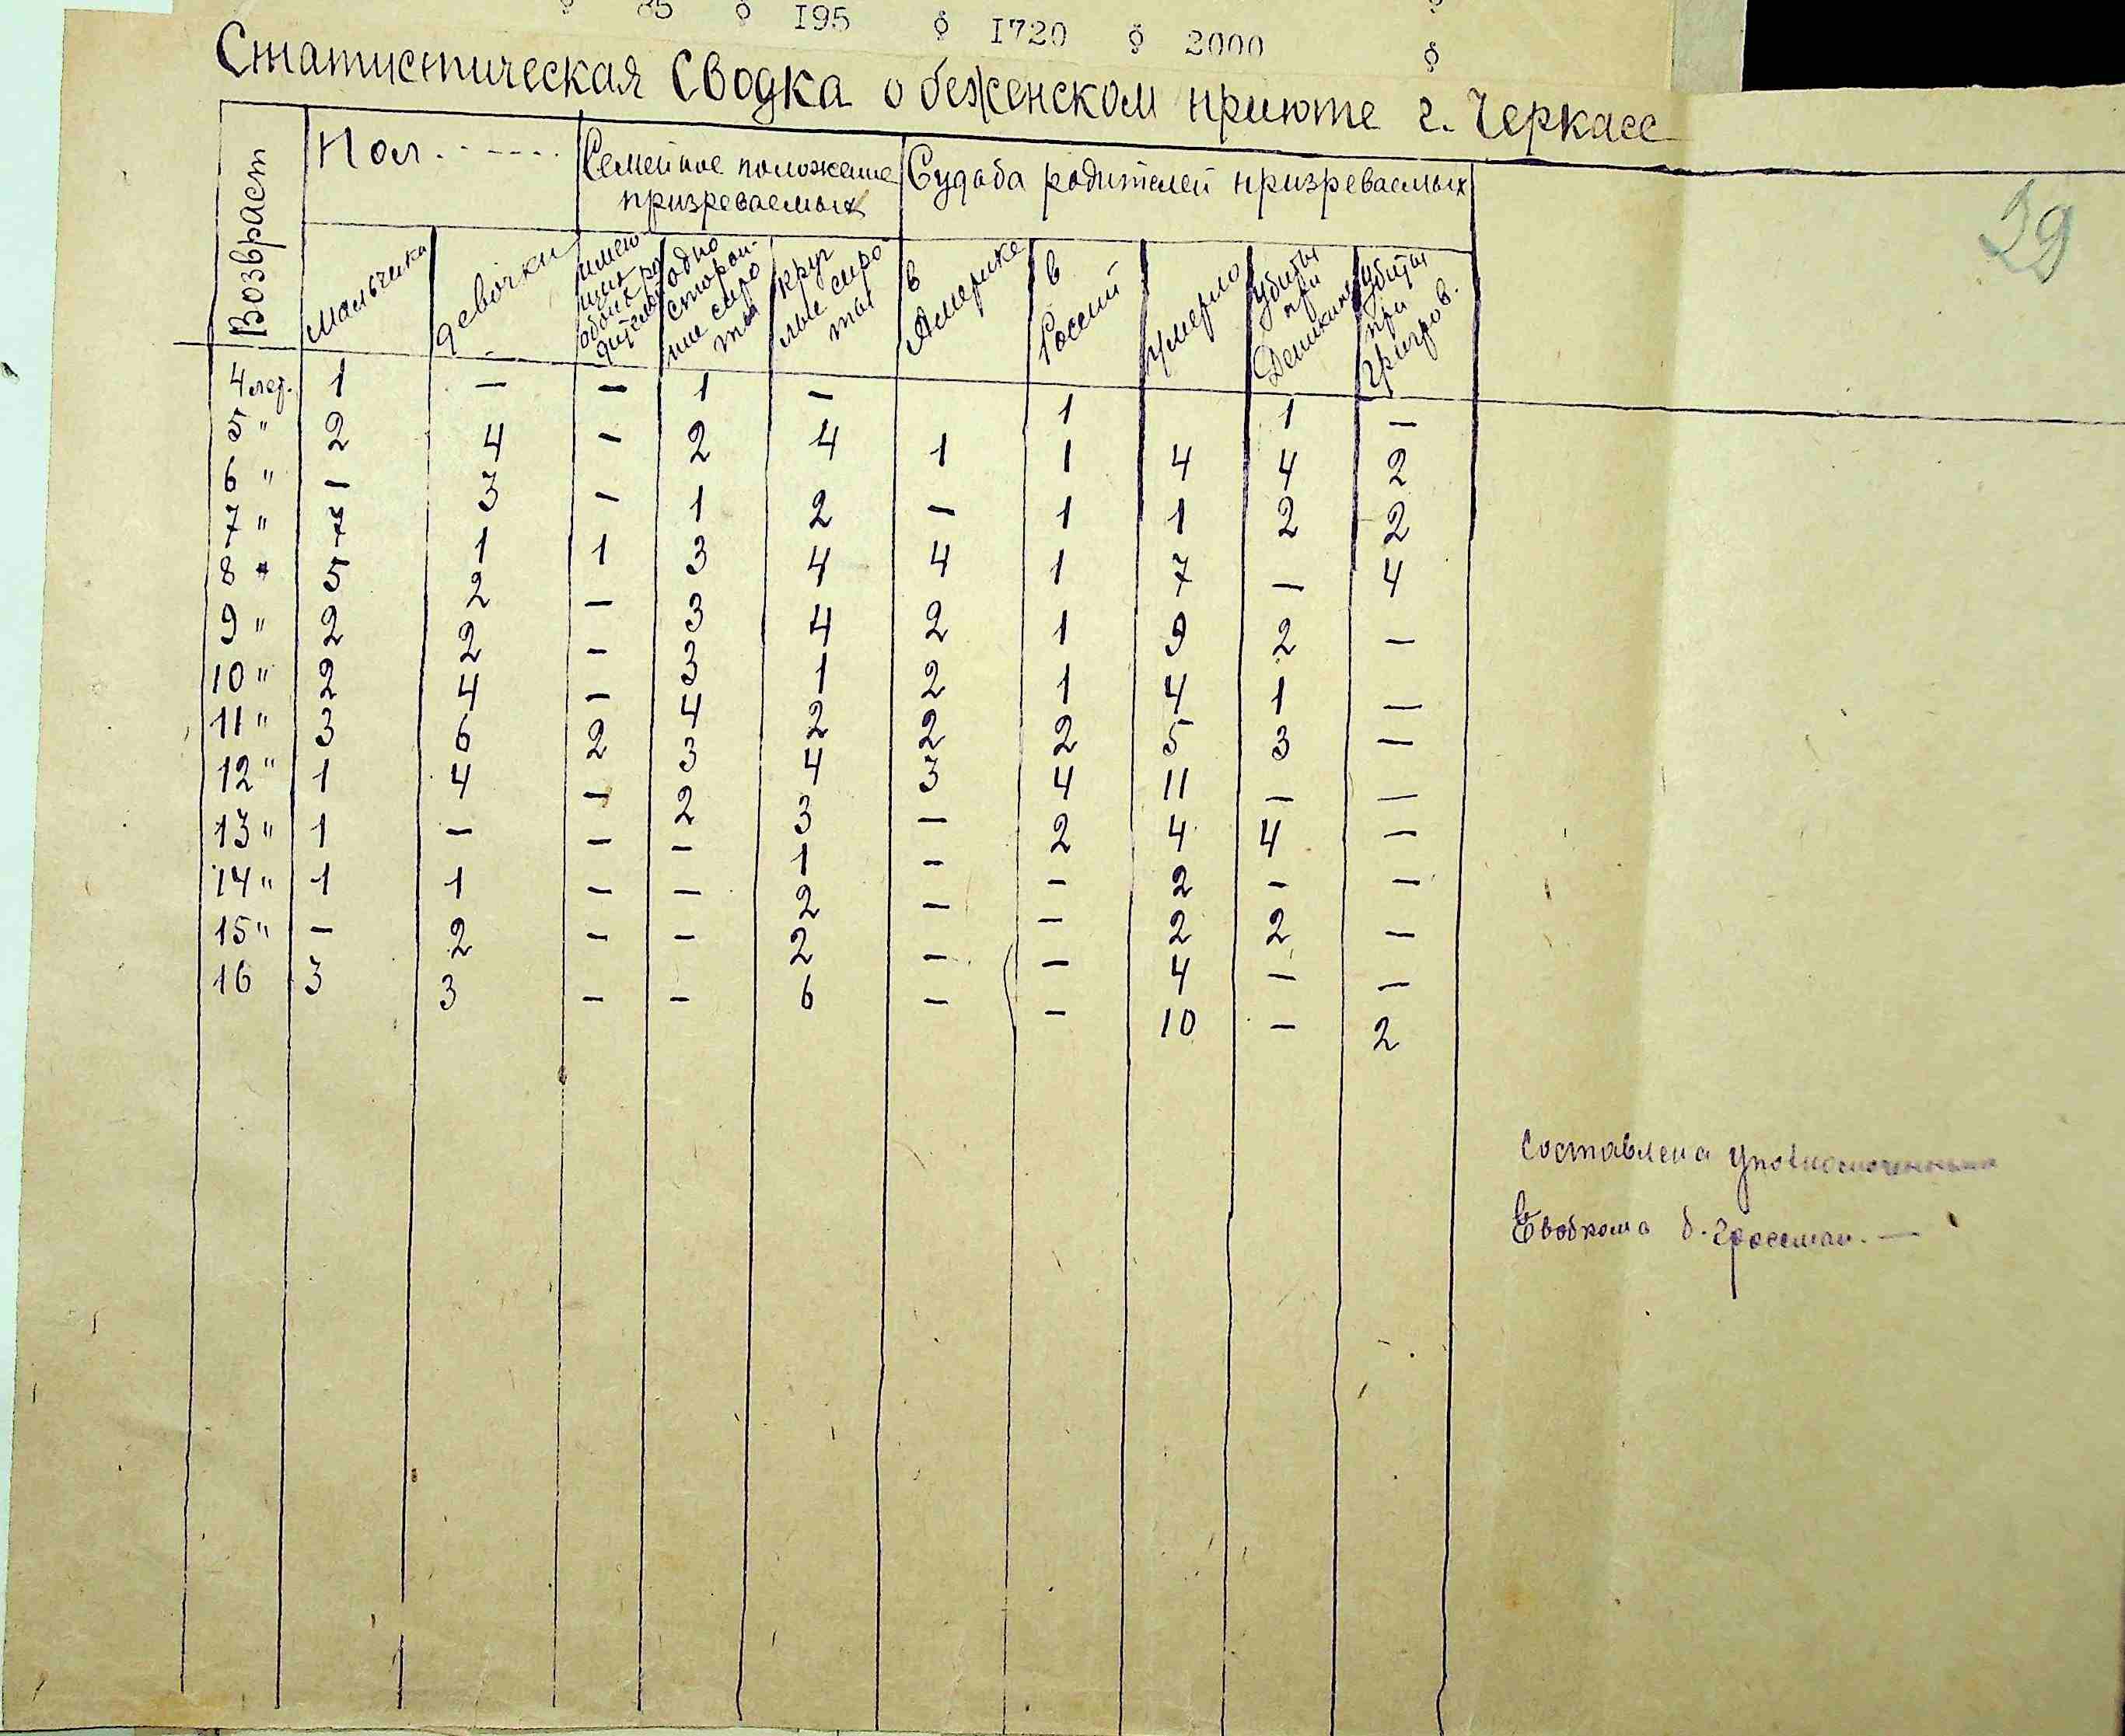 85 195 1720 2000
Статистическая Сводка о беженском приюте г. Черкасс
Возвраст | Пол. | Семейное положение призреваемых | Судьба родителей призреваемых
мальчика | девочки | имею-щия обоих ро дителей | одно сторон-ние сиро ты | круг лые сиро ты | в Америке | в России | умерло | убиты при Деникине | убиты при Григоров.
4 лет. 1 — — 1 — 1 1 —
5 " 2 4 — 2 4 1 1 4 4 2
6 " — 3 — 1 2 — 1 1 2 2
7 " 7 1 1 3 4 4 1 7 — 4
8 " 5 2 — 3 4 2 1 9 2 —
9 " 2 2 — 3 1 2 1 4 1 —
10 " 2 4 — 4 2 2 2 5 3 —
11 " 3 6 2 3 4 3 4 11 — —
12 " 1 4 — 2 3 — 2 4 4 —
13 " 1 — — — 1 — — 2 — —
14 " 1 1 — — 2 — — 2 2 —
15 " — 2 — — 2 — — 4 — —
16 3 3 — — 6 — — 10 — 2
39
Составлена уполномоченным
Евобкома б. Гроссман. —